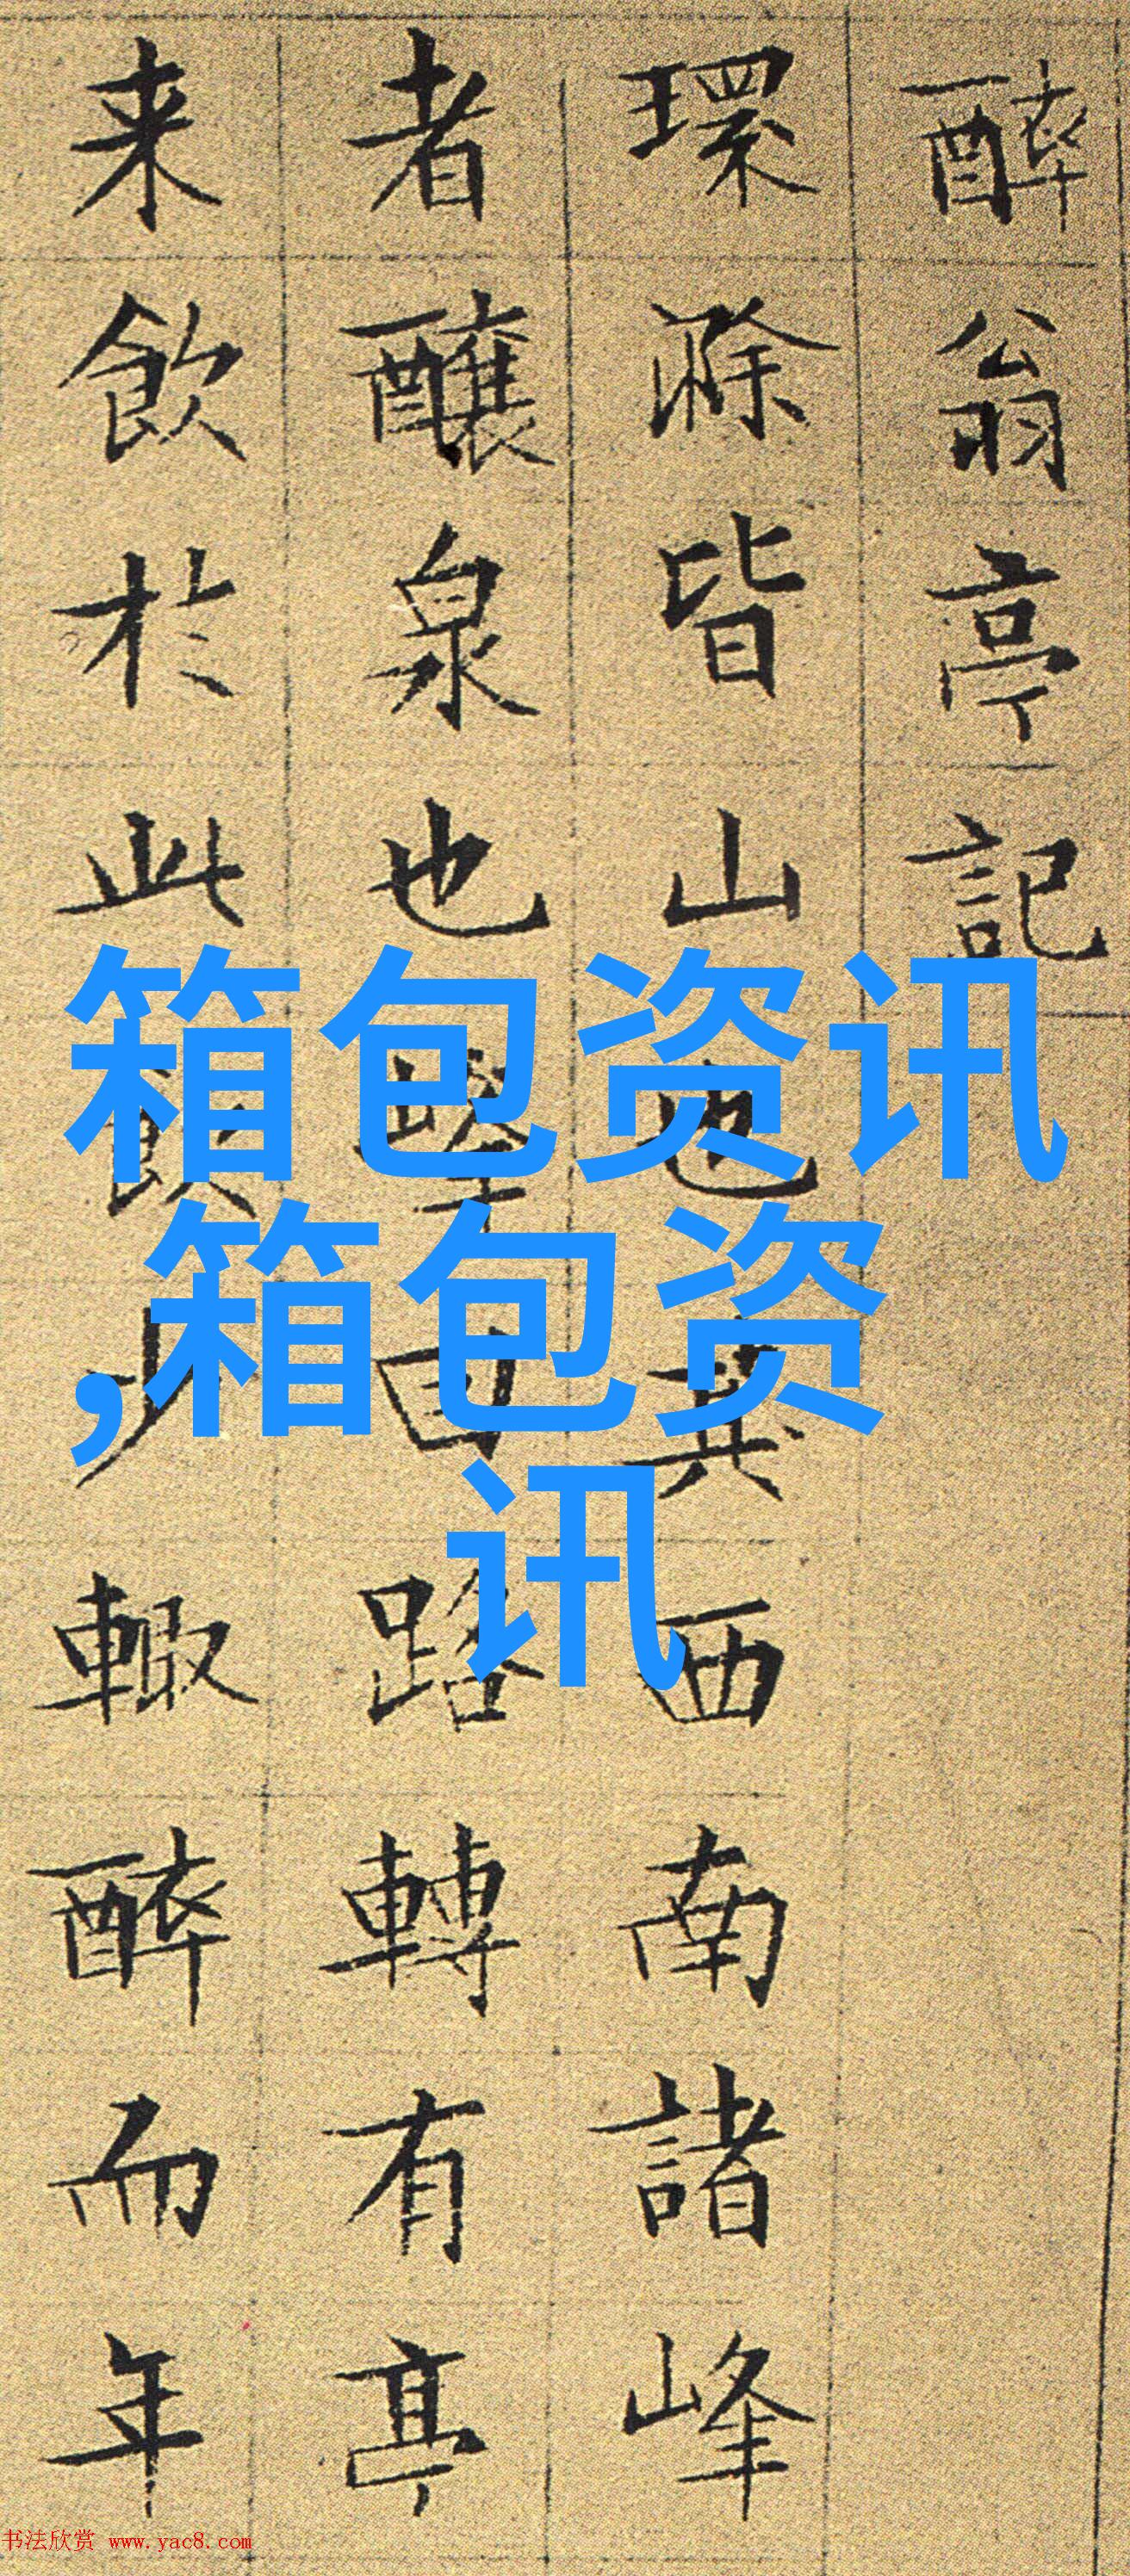 醉翁亭記
環滁皆山也其西南諸峰
者釀泉也峰回路轉有亭
来飲於此飲少輒醉而年
箱包资讯
,箱包资
讯
书法欣赏 www.yac8.com